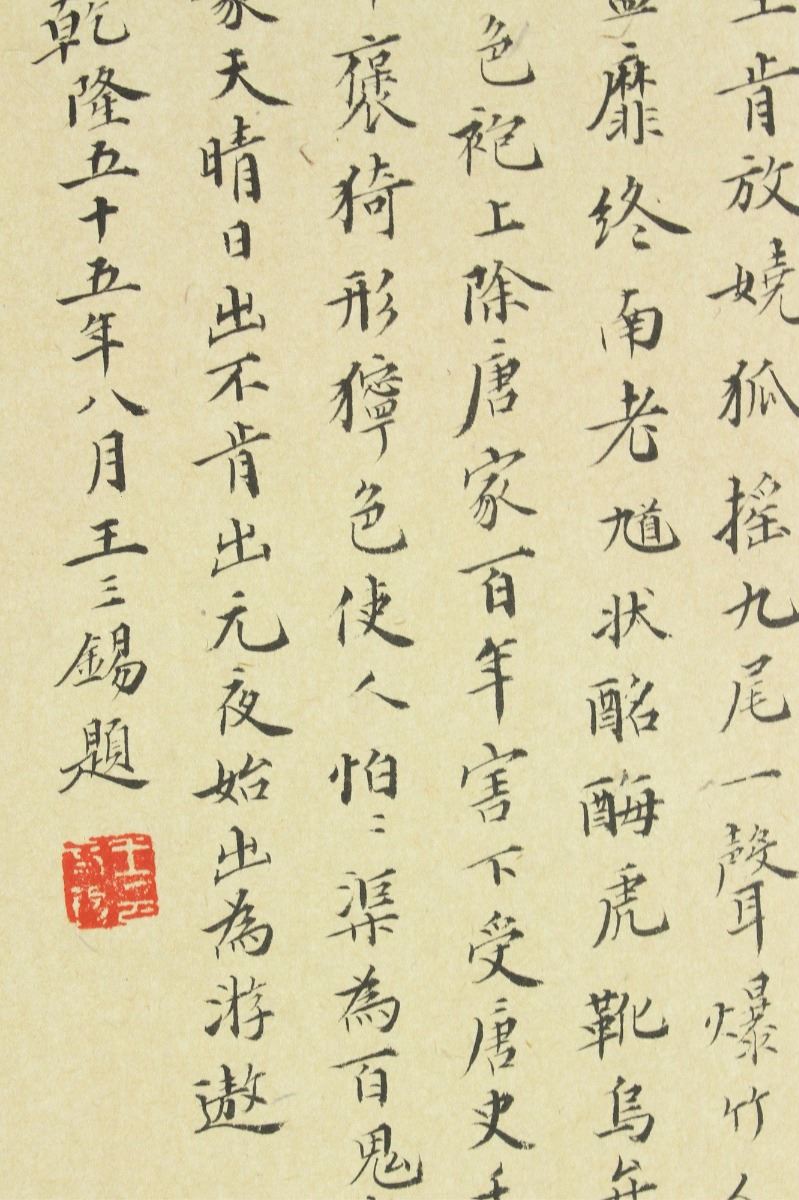 肯放嬈狐搖九尾一聲爆竹
靡終南老馗狀酩酶虎靴烏
色袍上除唐家百年害下受唐史
褒猗形獰色使人怕〻渠為百鬼
家天晴日出不肯出元夜始出為游遨
乾隆五十五年八月王三錫題